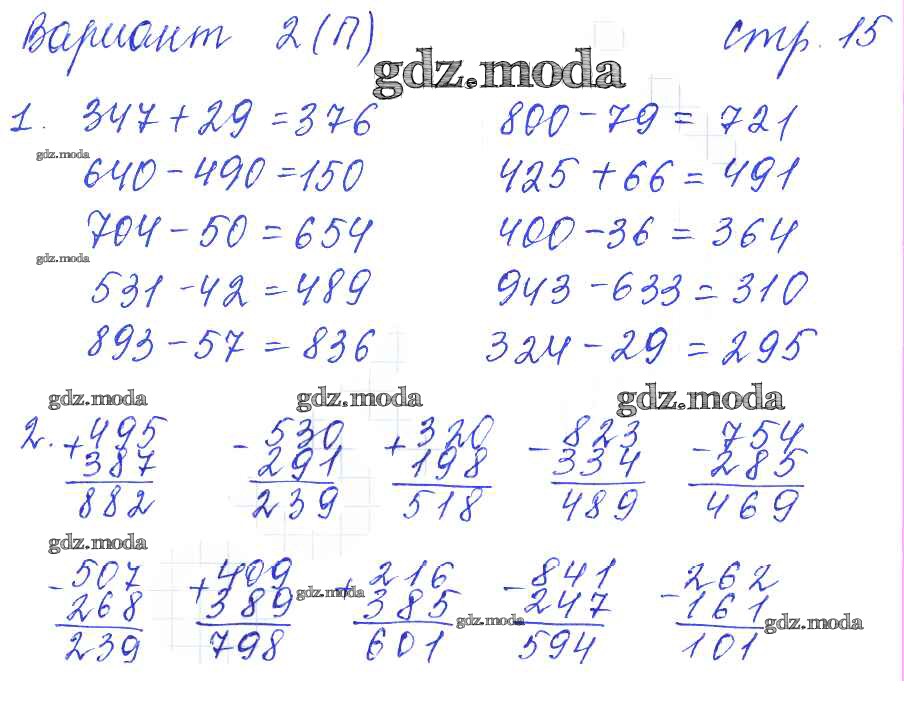 Вариант 2(П) стр. 15
gdz.moda
1. 347 + 29 = 376 800 - 79 = 721
gdz.moda
640 - 490 = 150 425 + 66 = 491
704 - 50 = 654 400 - 36 = 364
gdz.moda
531 - 42 = 489 943 - 633 = 310
893 - 57 = 836 324 - 29 = 295
gdz.moda gdz.moda gdz.moda
2. + 495 - 530 + 320 - 823 - 754
387 291 198 334 285
882 239 518 489 469
gdz.moda
- 507 + 409 + 216 - 841 - 262
gdz.moda
268 389 385 247 161
gdz.moda gdz.moda
239 798 601 594 101